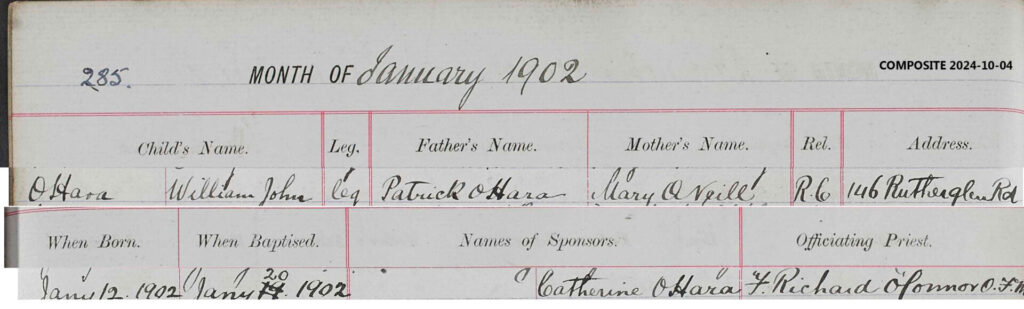 285. MONTH OF January 1902 COMPOSITE 2024-10-04
Child's Name. Leg. Father's Name. Mother's Name. Rel. Address.
O'Hara William John Leg Patrick O'Hara Mary O'Neill R.C 146 Rutherglen Rd
When Born. When Baptised. Names of Sponsors. Officiating Priest.
Jany 12. 1902 Jany 20 1902 Catherine O'Hara F. Richard O'Connor O.F.M